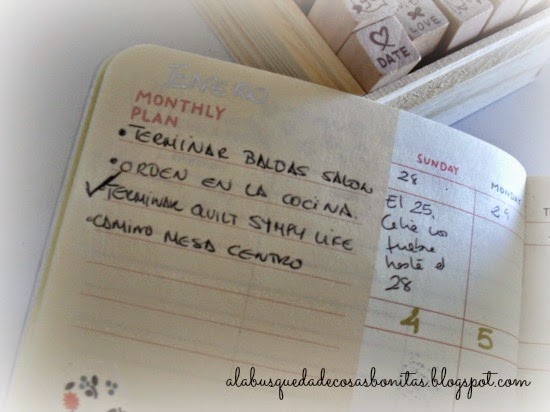 LOVE
DATE
ENERO
MONTHLY
PLAN
• TERMINAR BALDAS SALON
• ORDEN EN LA COCINA.
✓ TERMINAR QUILT SYMPLY LIFE
• CAMINO MESA CENTRO
SUNDAY
MONDAY
28
29
El 25,
hasta el
28
4
5
alabusquedadecosasbonitas.blogspot.com